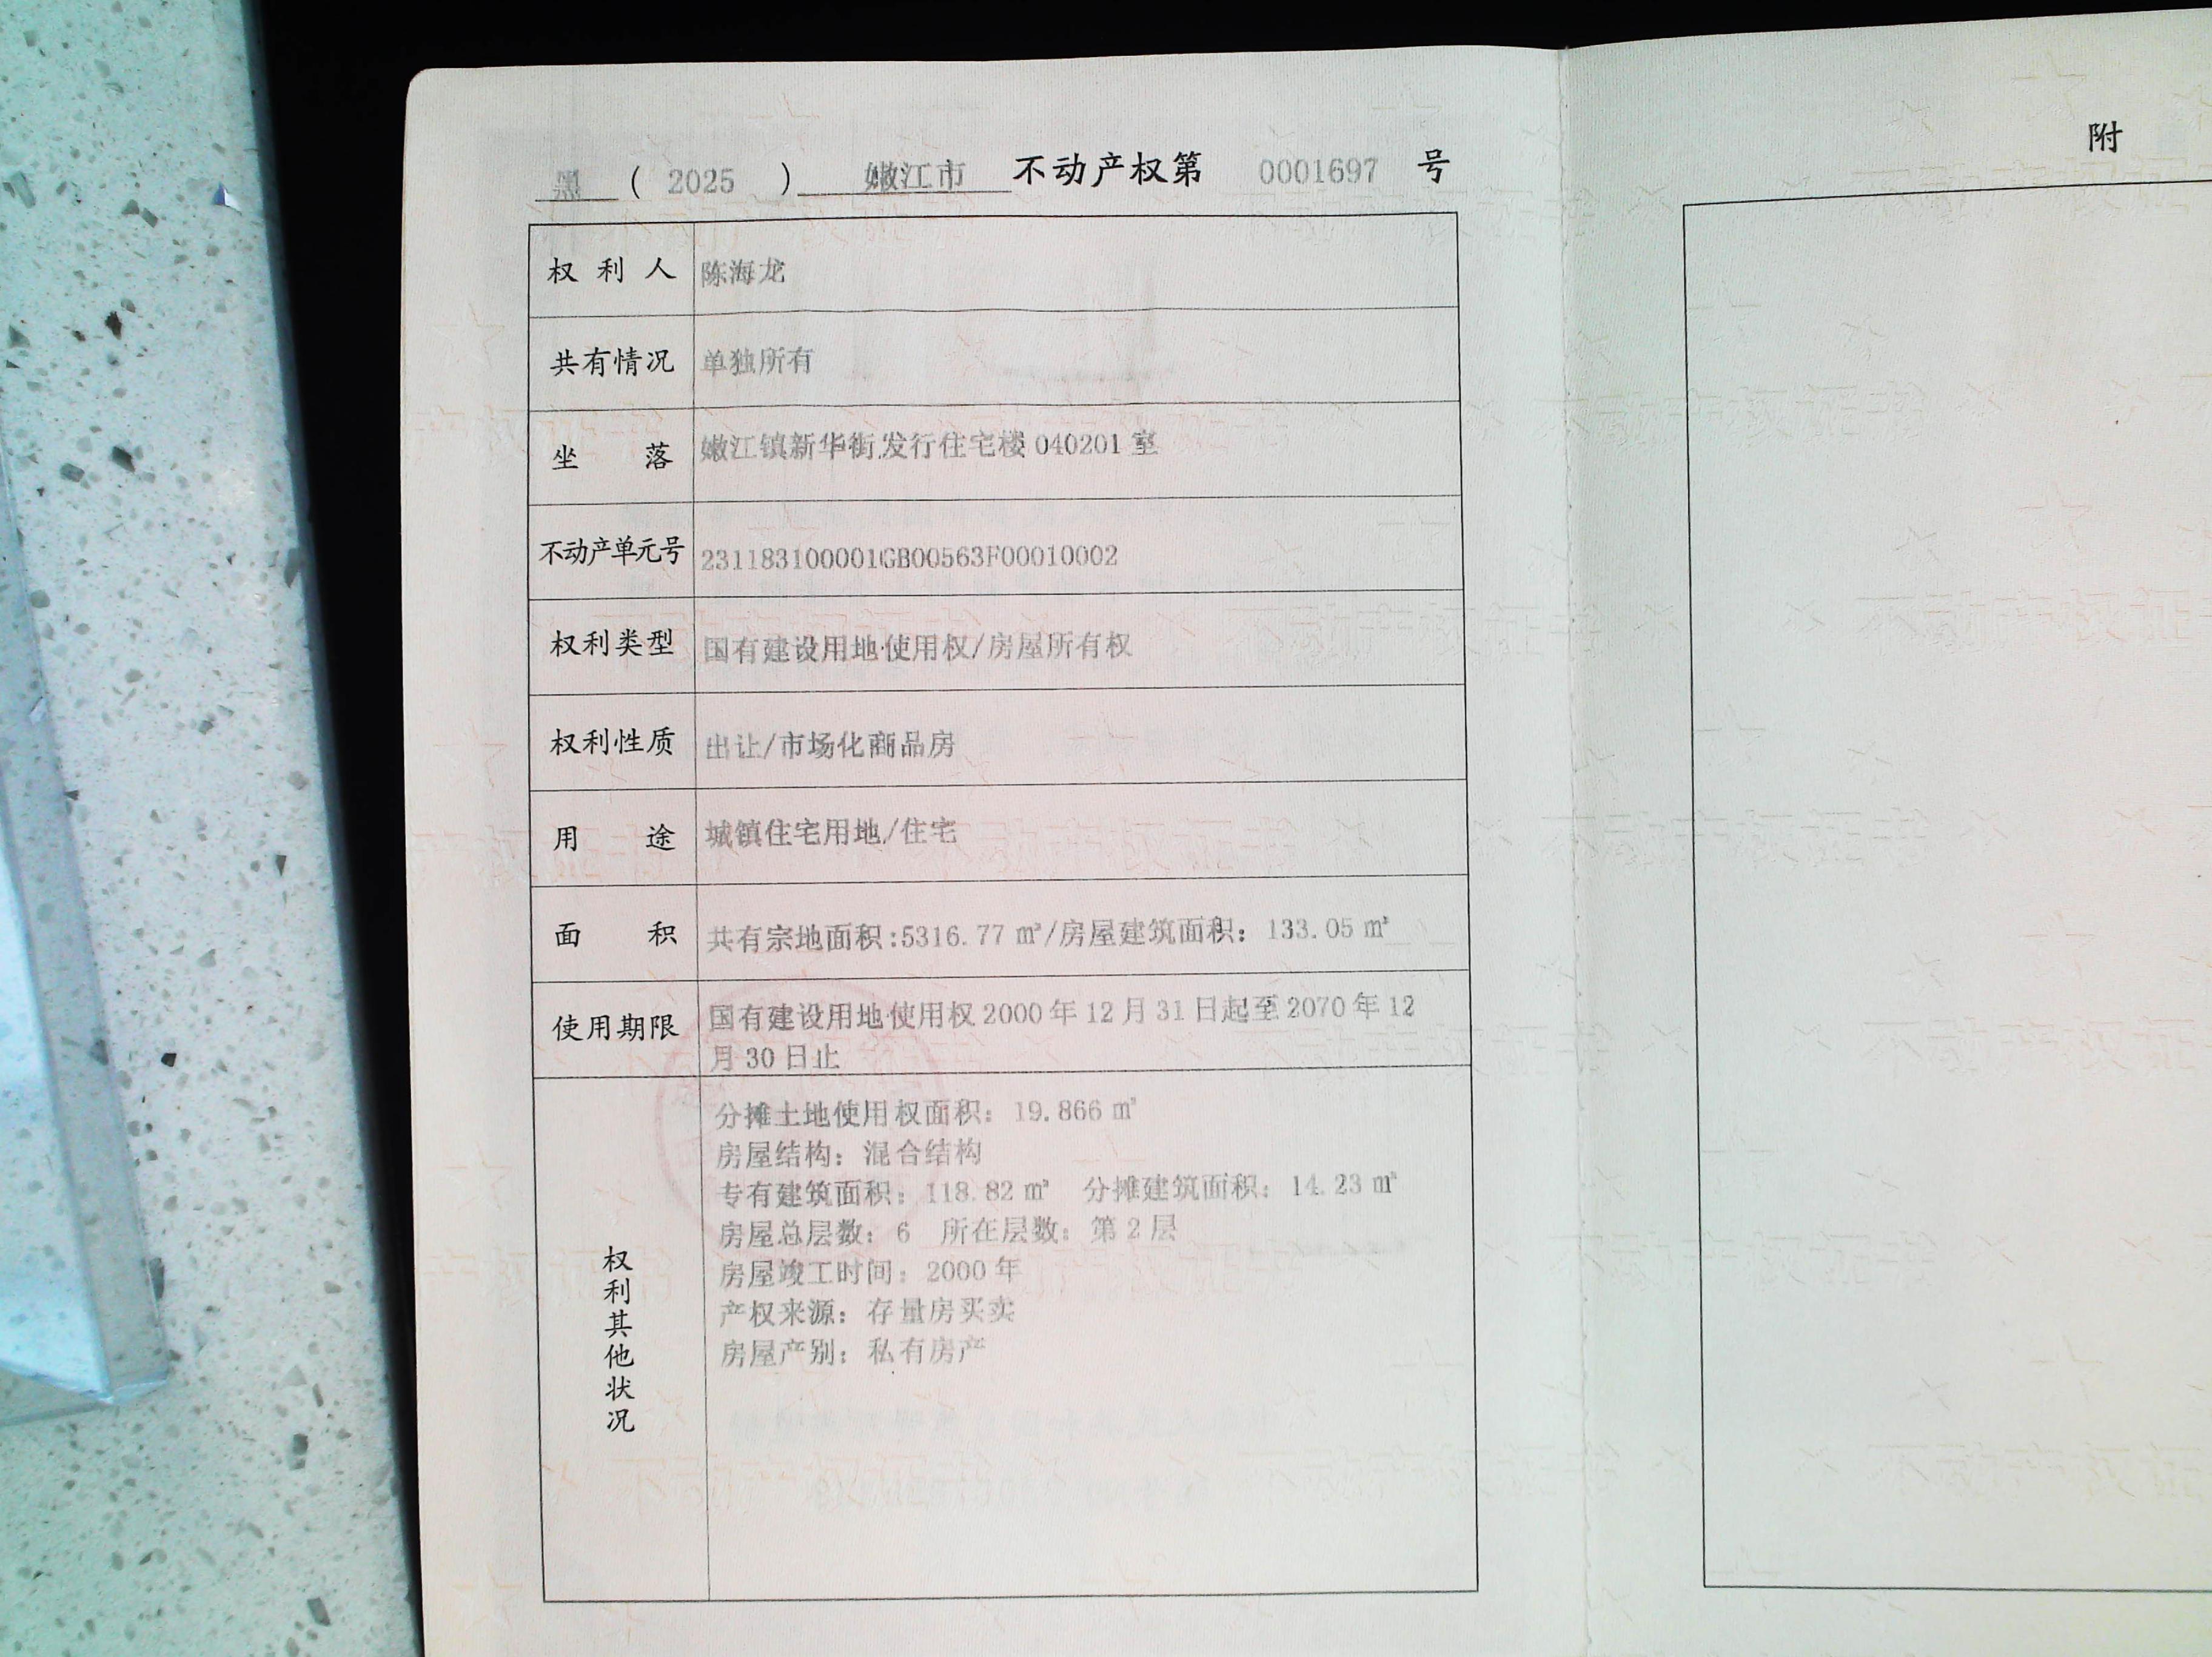 黑 ( 2025 ) 嫩江市 不动产权第 0001697 号
权利人 陈海龙
共有情况 单独所有
坐落 嫩江镇新华街发行住宅楼 040201 室
不动产单元号 231183100001GB00563F00010002
权利类型 国有建设用地使用权/房屋所有权
权利性质 出让/市场化商品房
用途 城镇住宅用地/住宅
面积 共有宗地面积:5316.77 ㎡/房屋建筑面积: 133.05 ㎡
使用期限 国有建设用地使用权 2000 年 12 月 31 日起至 2070 年 12
月 30 日止
权利其他状况
分摊土地使用权面积: 19.866 ㎡
房屋结构: 混合结构
专有建筑面积: 118.82 ㎡ 分摊建筑面积: 14.23 ㎡
房屋总层数: 6 所在层数: 第 2 层
房屋竣工时间: 2000 年
产权来源: 存量房买卖
房屋产别: 私有房产
附